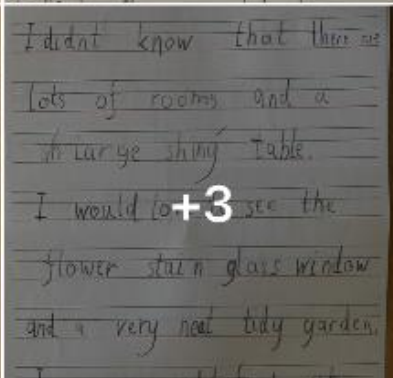 I didnt know that there are
lots of rooms and a
large shiny table.
I would to see the
+3
flower stain glass window
and a very neat tidy garden.
I